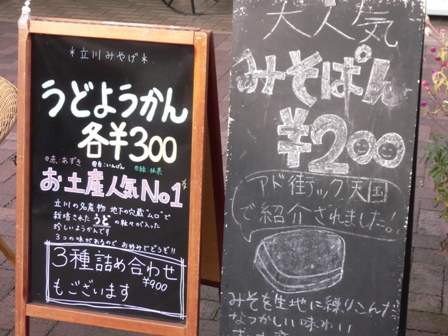 *立川みやげ*
うどようかん
各¥300
赤:あずき 白:いんげん 緑:抹茶
お土産人気No1
立川の名産物 地下の穴蔵"ムロ"で
栽培された うどの粒々が入った
珍しいようかんです
3つの味があるので お好みでどうぞ!!
3種詰め合わせ
¥900
もございます
大人気
みそぱん
¥200
アド街ック天国
で紹介されました!
みそを生地に練りこんだ
なつかしい味わい